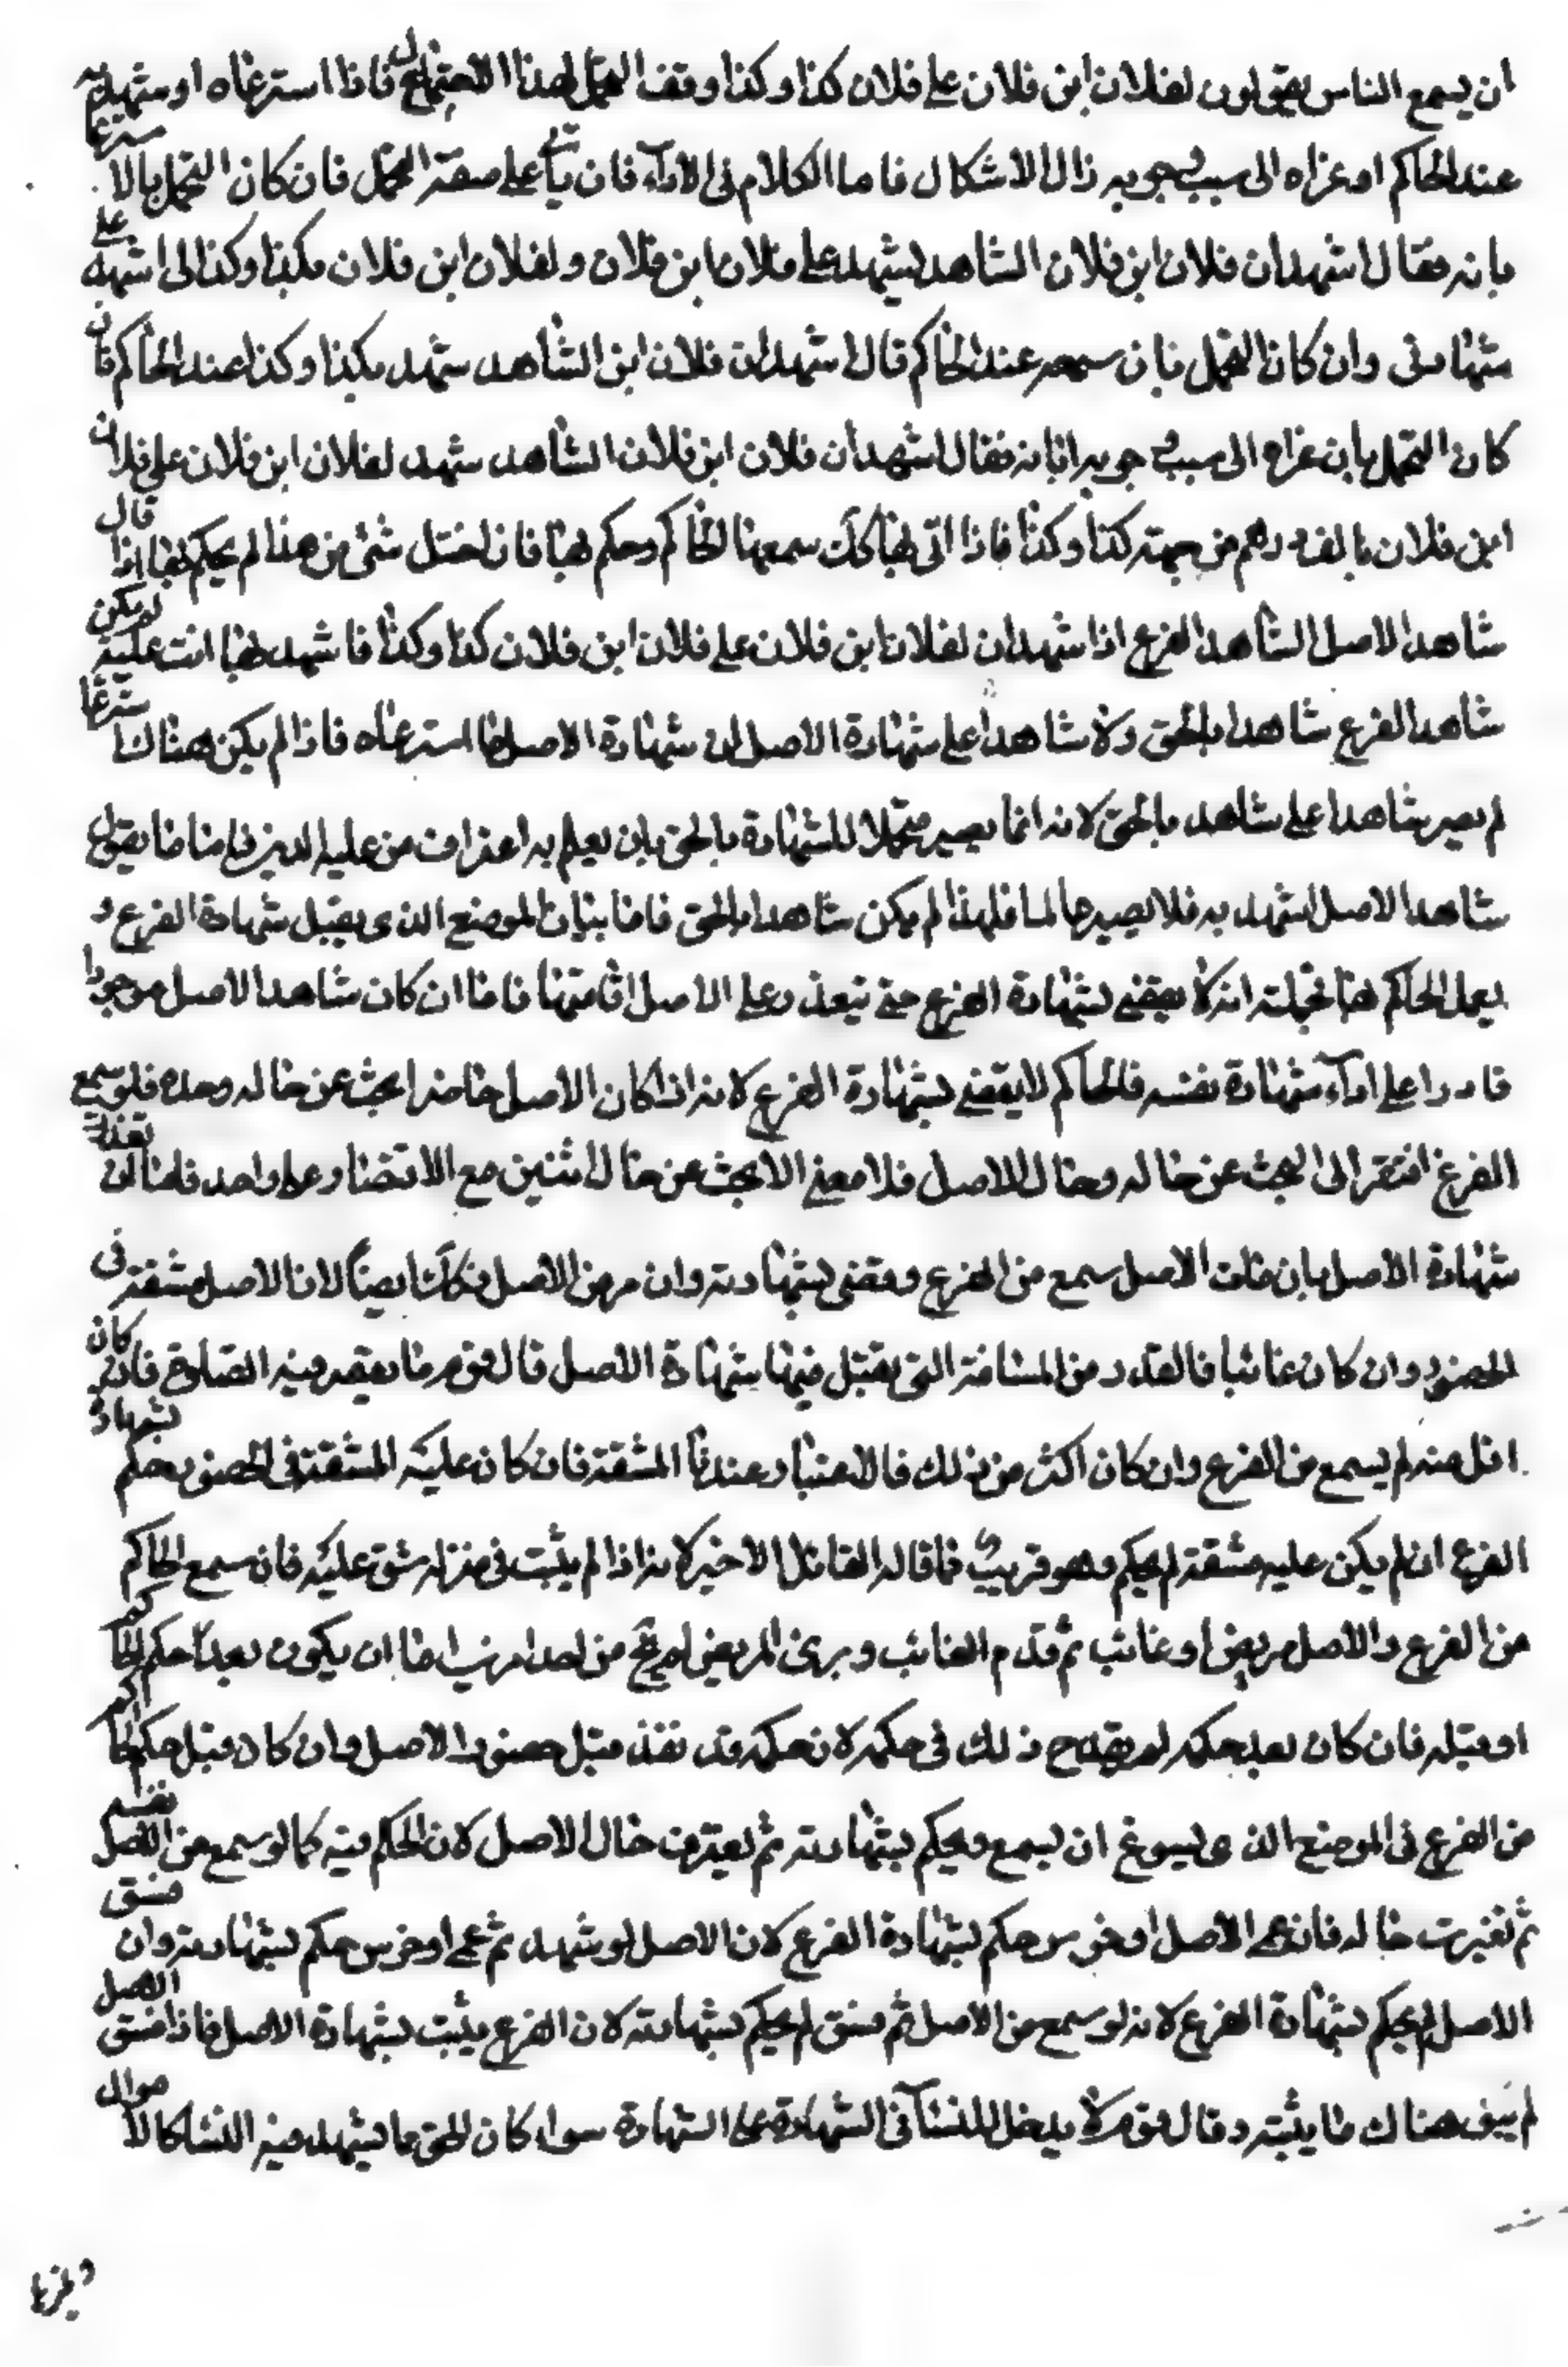 ان يسمع الناس يقولون لفلان ابن فلان على فلان كذا وكذا وقف التحمل لهذا الاحتمال فاذا استرعاه او شهد به
عند الحاكم او عزاه الى سبب وجوبه زال الاشكال فاما الكلام فى الاداء فان يأتي على صفة التحمل فان كان التحمل بالاسترعا
بانه فقال اشهد ان فلان ابن فلان الشاهد يشهد على فلان ابن فلان ولفلان ابن فلان بكذا وكذا الى اشهد على
شهادتى وان كان التحمل فان سمعه عند الحاكم قال اشهد ان فلان ابن الشاهد شهد بكذا وكذا عند الحاكم فان
كان التحمل بان عزاه الى سبب وجوبه اتا به فقال اشهد ان فلان ابن فلان الشاهد شهد لفلان ابن فلان على فلان
ابن فلان بالف درهم من جهته كذا وكذا فاذا اتى بها كك سمعها الحاكم وحكم بها فان اختل شئ من هذا لم يحكم بها اذا قال
شاهد الاصل الشاهد الفرع اذا شهد ان لفلان ابن فلان على فلان ابن فلان كذا وكذا فاشهد بها انت عليه لم يكن
شاهد الفرع شاهدا بالحق ولا شاهدا على شهادة الاصل لان شهادة الاصل لما استرعاه فاذا لم يكن هناك استرعا
لم يصير شاهدا على شاهد بالحق لانه انما يصير متحملا للشهادة بالحق بان يعلم به اعتراف من عليه الدين فاما ما يقول
شاهد الاصل اشهد به فلا يصير عالما فلهذا لم يكن شاهدا بالحق فاما بيان الموضع الذى يقبل شهادة الفرع و
يعمل الحاكم بها فجملته انه لا يقضى بشهادة الفرع حتى يتعذر على الاصل اقامتها فاما ان كان شاهد الاصل موجودا
قادرا على اداء شهادة نفسه فالحاكم لا يقضى بشهادة الفرع لانه اذا كان الاصل حاضرا بحث عن حاله وحده فلو سمع
الفرع افتقر الى البحث عن حاله وحال الاصل فلا معنى الا بحث عن حال اثنين مع الاقتضار على واحد فاما ان تعذر
شهادة الاصل بان مات الاصل سمع من الفرع وقضى بشهادته وان مرض الاصل فكك ايضا لان الاصل مشقة فى
الحضور وان كان غائبا فالقدر من المسافة التى يقبل فيها شهادة الاصل قال قوم ما يقصر فيه الصلوة فان كان
اقل منه لم يسمع من الفرع وان كان اكثر من ذلك فالاعتبار عندنا المشقة فان كان عليه المشقة فى الحضور حكم بشهادة
الفرع ان لم يكن عليه مشقة لم يحكم وهو قريب فما قاله القائل الاخير لانه اذا لم يثبت فى منزله شق عليه فان سمع الحاكم
من الفرع والاصل مريض او غائب ثم قدم الغائب وبرئ المريض لم يخل من احد امرين اما ان يكون بعد حكم الحاكم
او قبله فان كان بعد حكمه لم يقدح ذلك فى حكمه لان حكمه قد نفذ قبل حضور الاصل وان كان قبل حكم الحاكم
من الفرع فى الموضع الذى يسوغ ان يسمع ويحكم بشهادته ثم تغيرت حال الاصل لان الحكم فيه كما لو سمع من الاصل نفسه
ثم تغيرت حاله فان عمى الاصل او خرس حكم بشهادة الفرع لان الاصل لو شهد ثم عمى او خرس حكم بشهادته وان فسق
الاصل لم يحكم بشهادة الفرع لانه لو سمع من الاصل ثم فسق لم يحكم بشهادته لان الفرع يثبت بشهادة الاصل فاذا فسق الاصل
لم يبق هناك ما يثبته وقال قوم لا يدخل للنساء فى الشهادة على الشهادة سواء كان الحق ما يشهد فيه النساء كالاموال